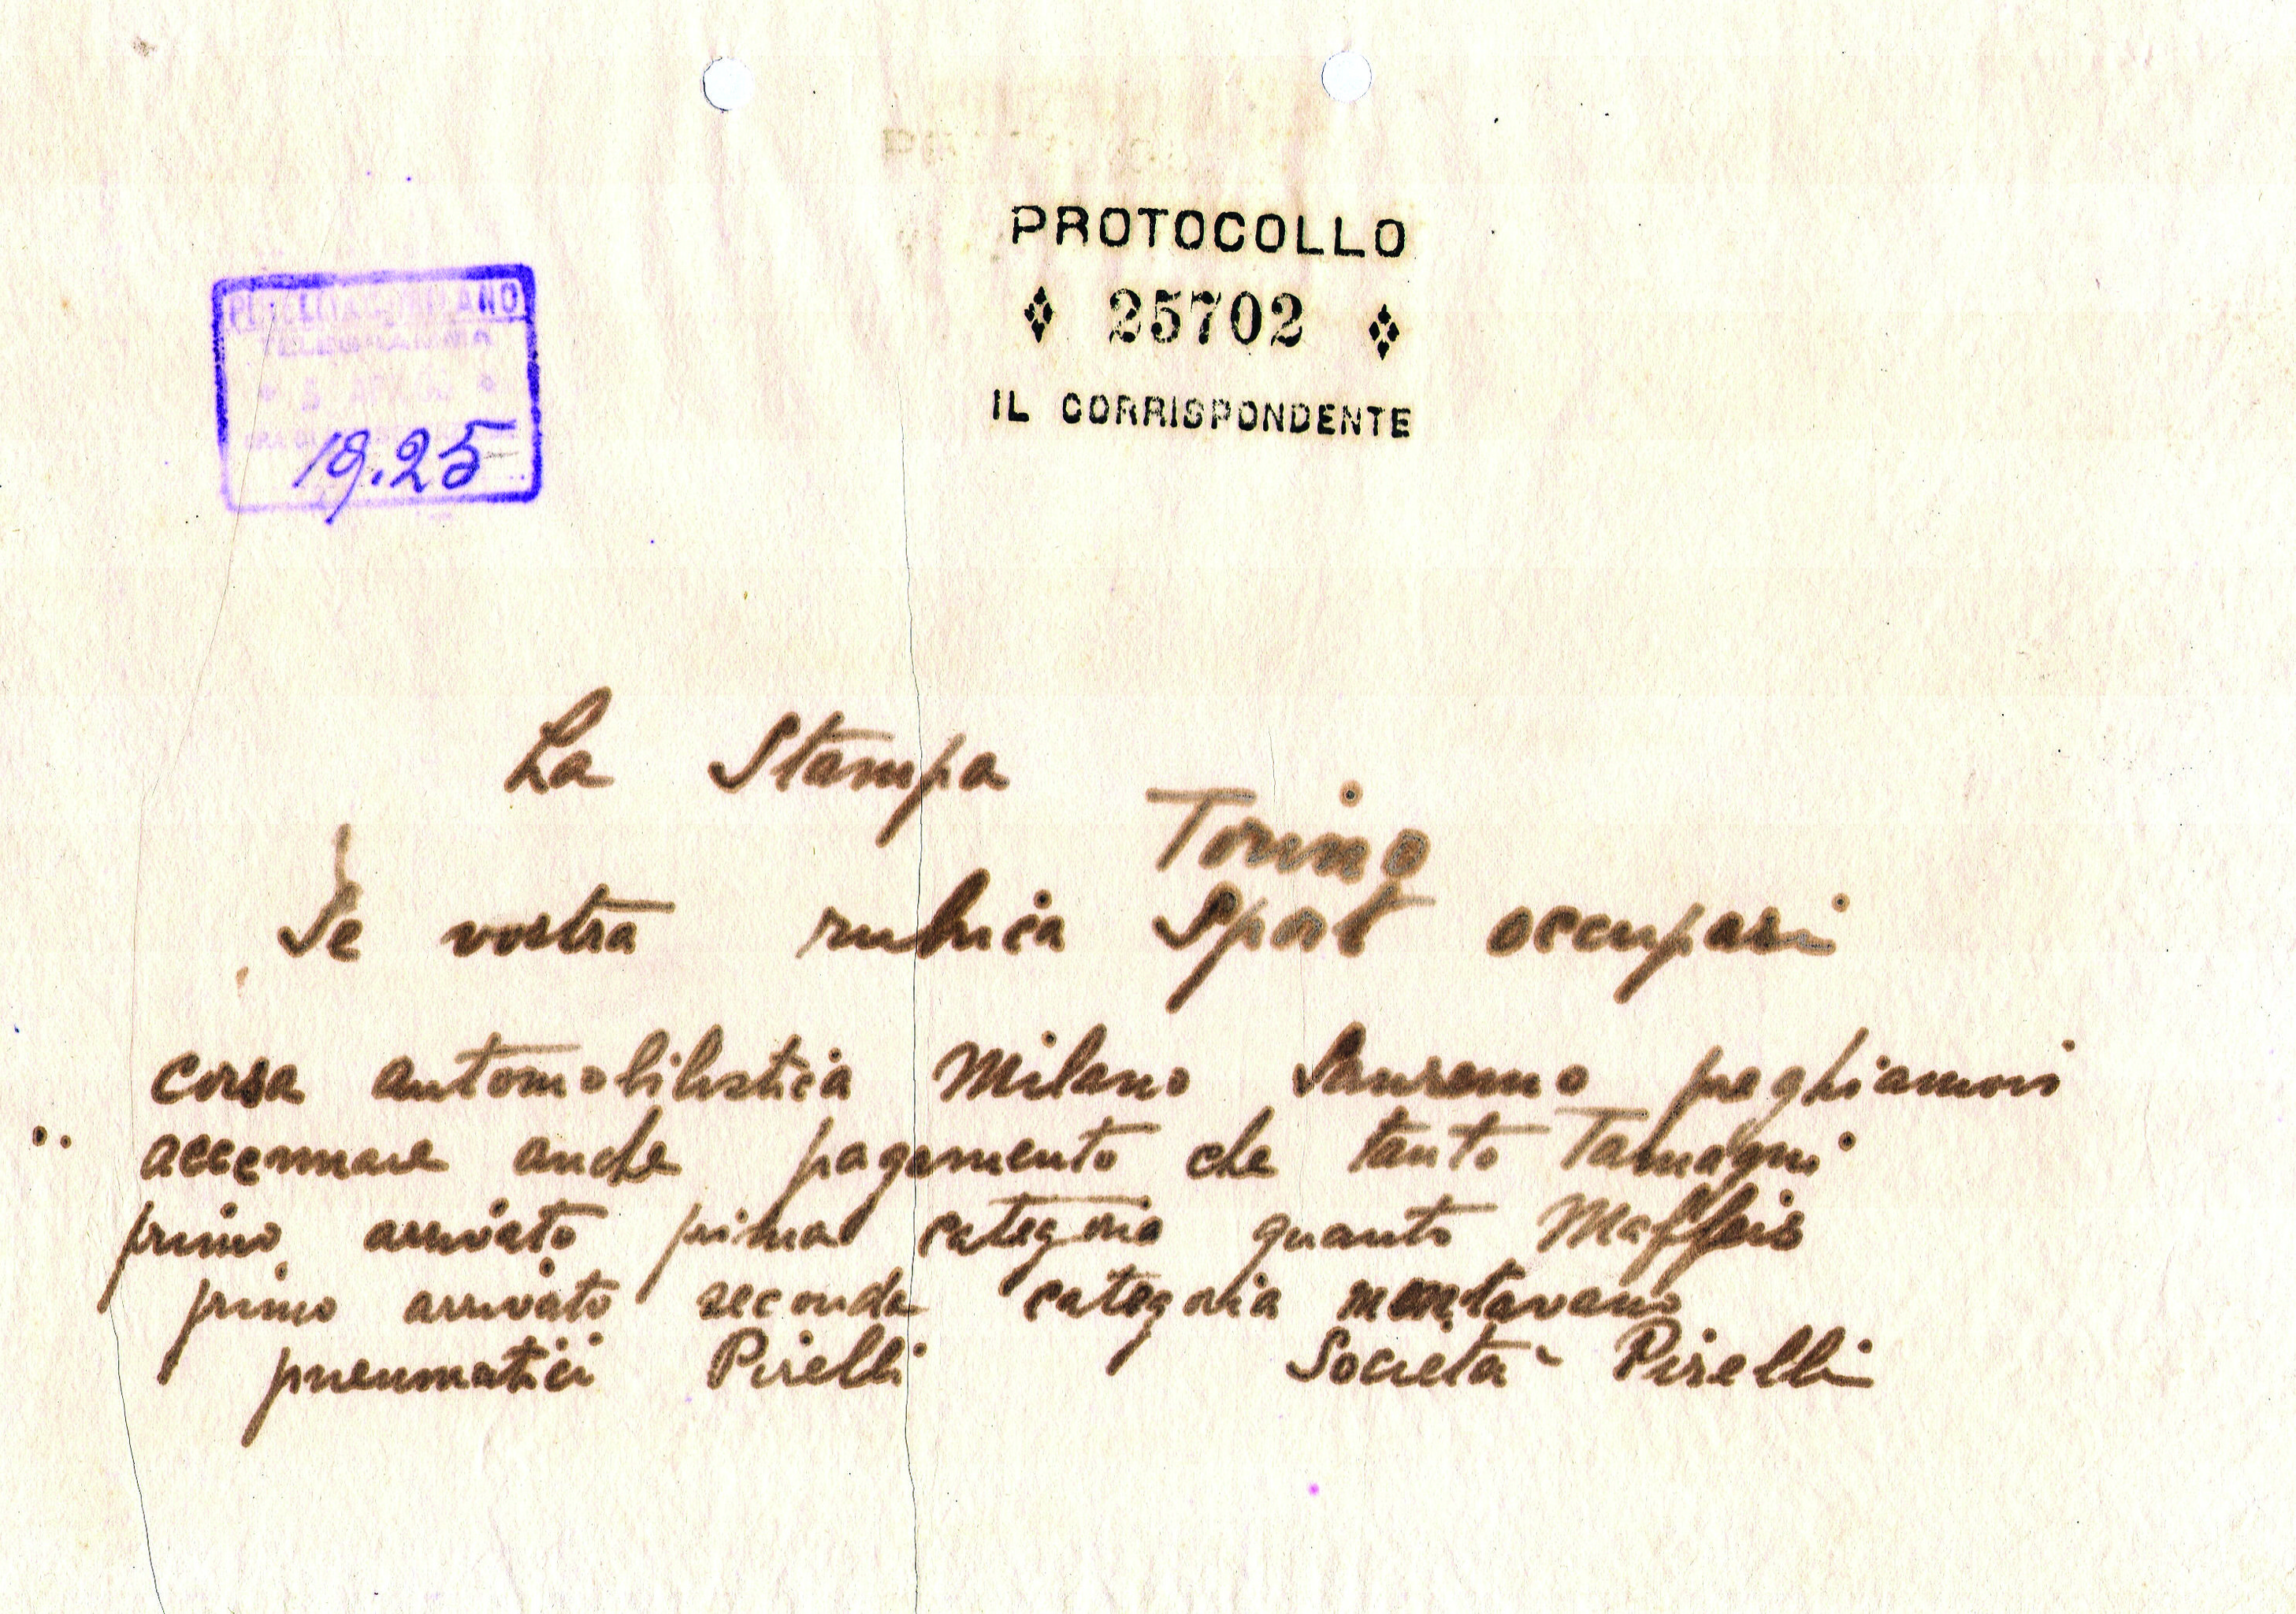 PROTOCOLLO
25702
IL CORRISPONDENTE
TELEGRAMMA
19.25
La Stampa
Torino
Se vostra rubrica Sport occupasi
corsa automobilistica Milano Sanremo preghiamovi
accennare anche pagamento che tanto Tamagni
primo arrivato prima categoria quanto Maffeis
primo arrivato seconda categoria montavano
pneumatici Pirelli Società Pirelli